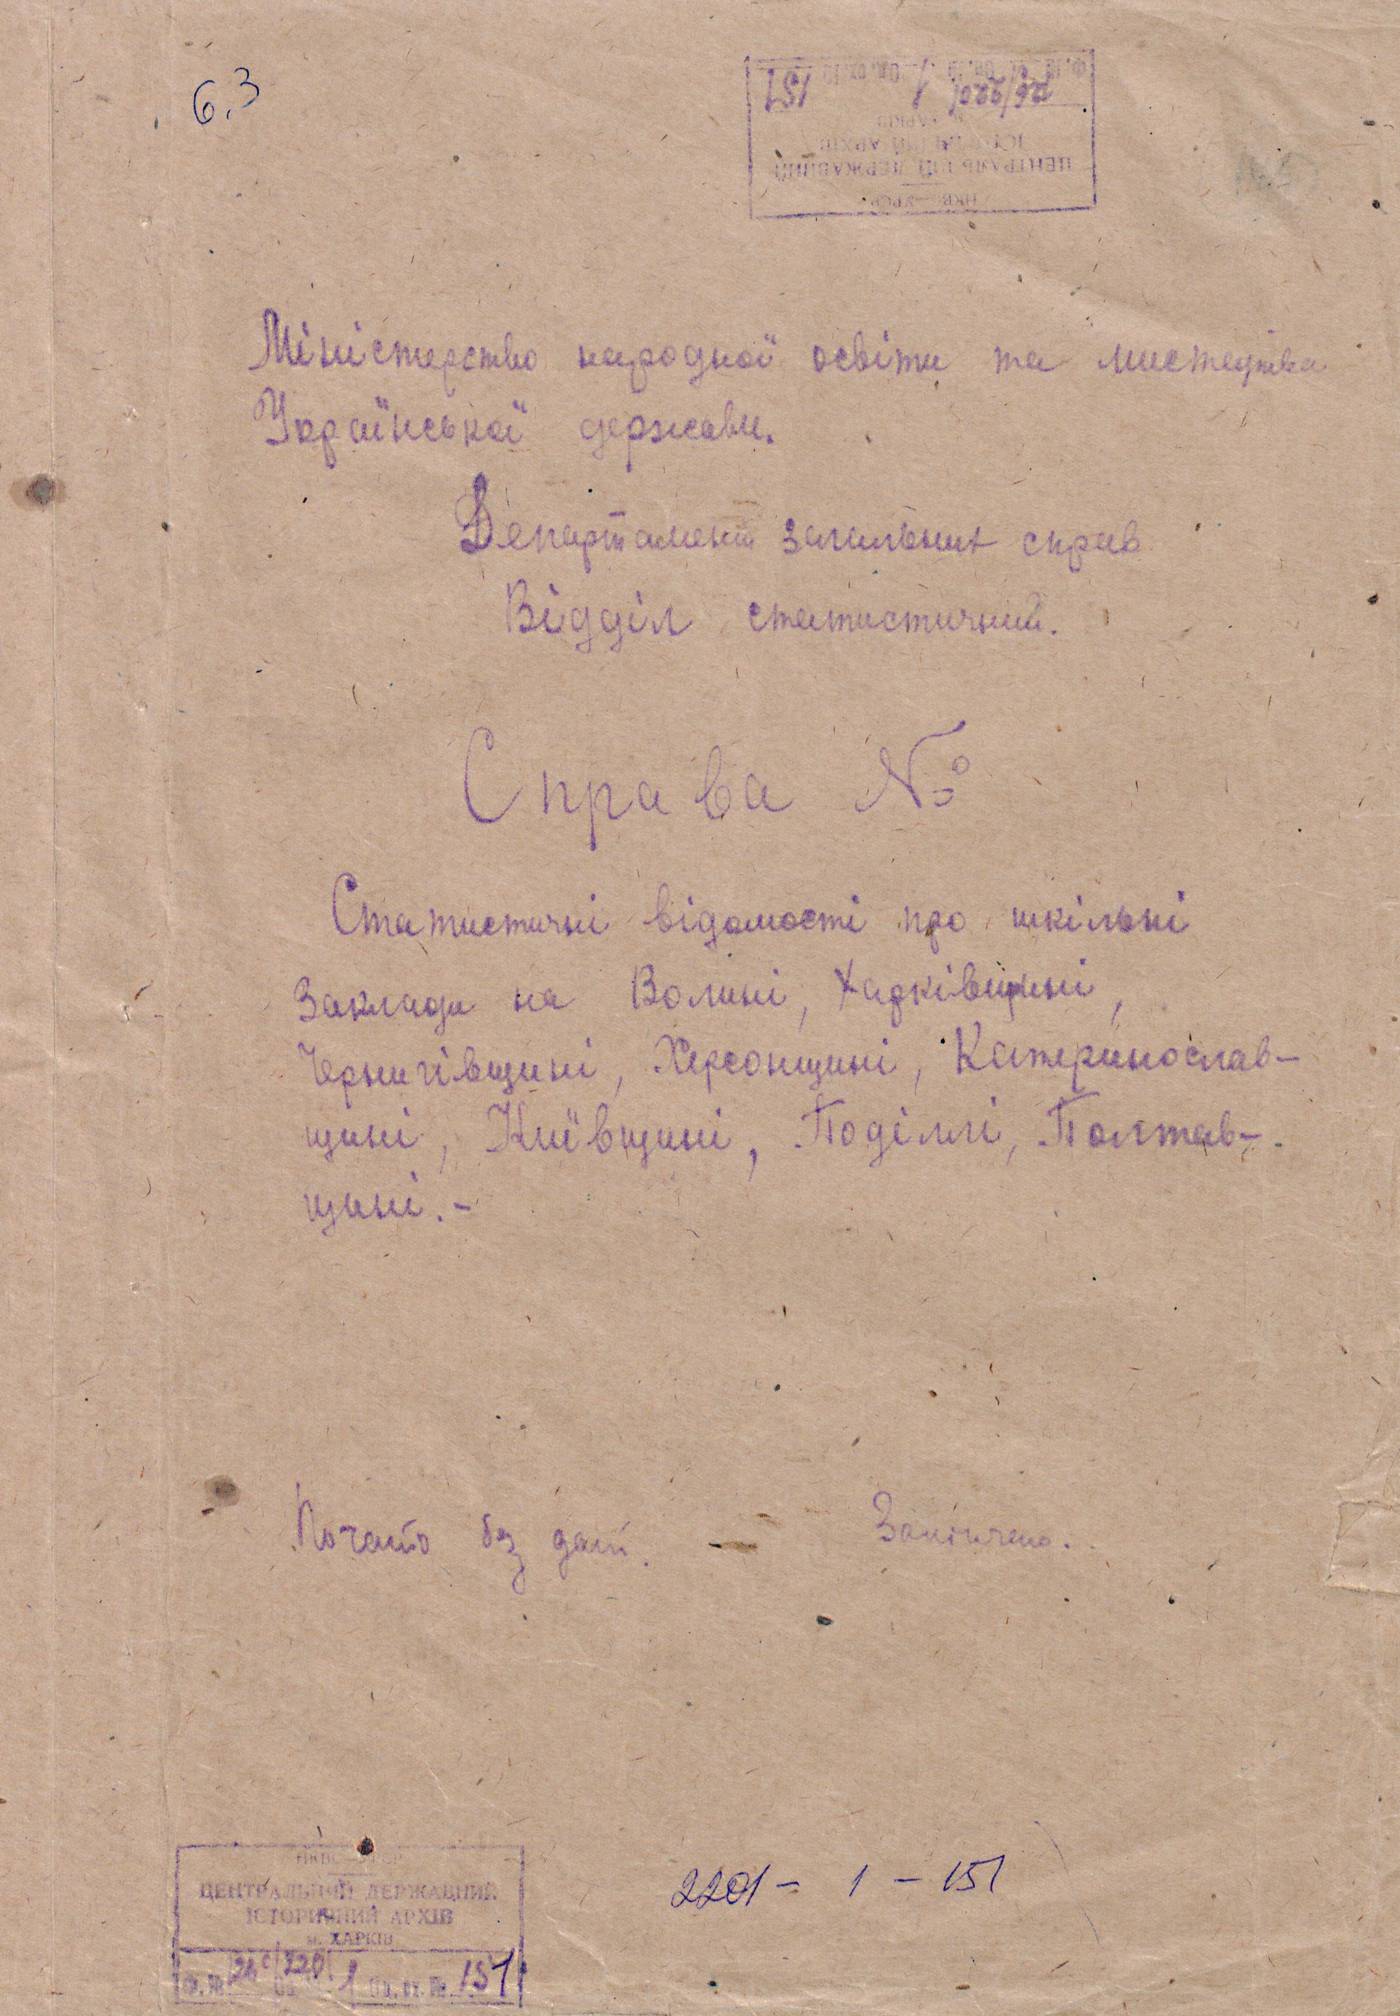 6.3
НКВС УРСР
ЦЕНТРАЛЬНИЙ ДЕРЖАВНИЙ
ІСТОРИЧНИЙ АРХІВ
м. ХАРКІВ
151
Міністерство народної освіти та мистецтва
Української держави.
Департамент загальних справ
Відділ статистичний.
Справа №
Статистичні відомості про шкільні
заклади на Волині, Харківщині,
Чернигівщині, Херсонщині, Катеринослав-
щині, Київщині, Поділлі, Полтав-
щині.-
Почато без дати. - Закінчено.
2201 - 1 - 151
ЦЕНТРАЛЬНИЙ ДЕРЖАВНИЙ
ІСТОРИЧНИЙ АРХІВ
м. ХАРКІВ
Ф. № 1 Од. зб. № 151